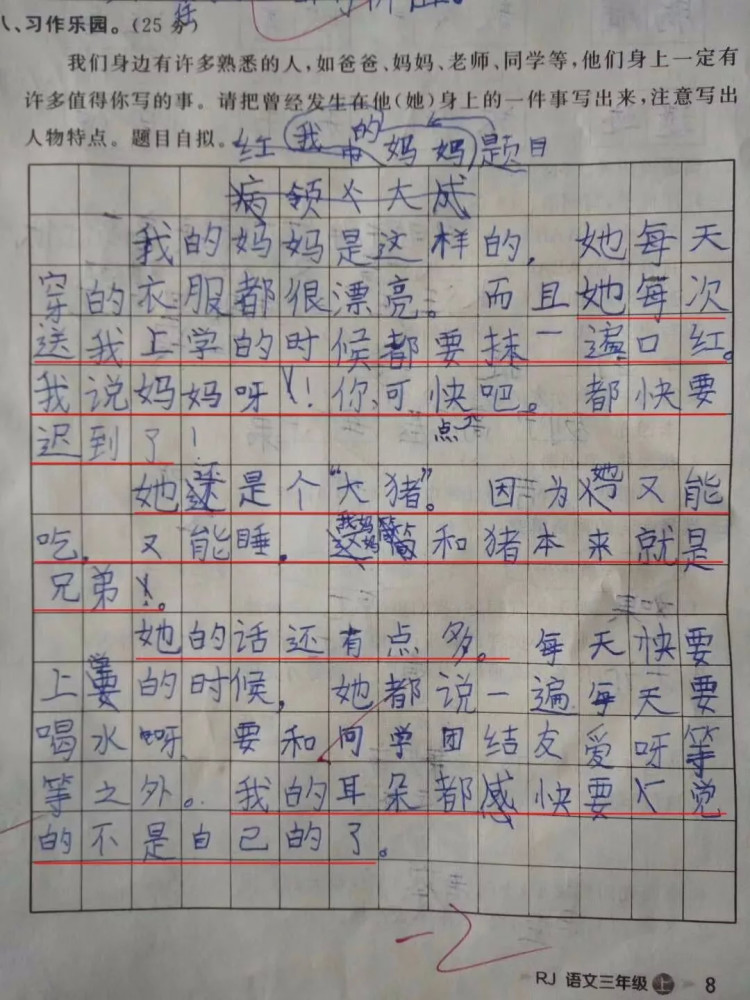 八、习作乐园。(25分)
我们身边有许多熟悉的人,如爸爸、妈妈、老师、同学等,他们身上一定有
许多值得你写的事。请把曾经发生在他(她)身上的一件事写出来,注意写出
人物特点。题目自拟。
我的妈妈 题目
我的妈妈是这样的,她每天
穿的衣服都很漂亮。而且她每次
送我上学的时候都要抹一遍口红。
我说妈妈呀!你可快点吧。都快要
迟到了!
她还是个“大猪”。因为她又能
吃,又能睡,我妈妈简直和猪本来就是
兄弟。
她的话还有点多。每天快要
上学的时候,她都说一遍每天要
喝水呀、要和同学团结友爱呀等
等之外。我的耳朵都快要感觉
的不是自己的了。
-2
RJ 语文三年级 上 8